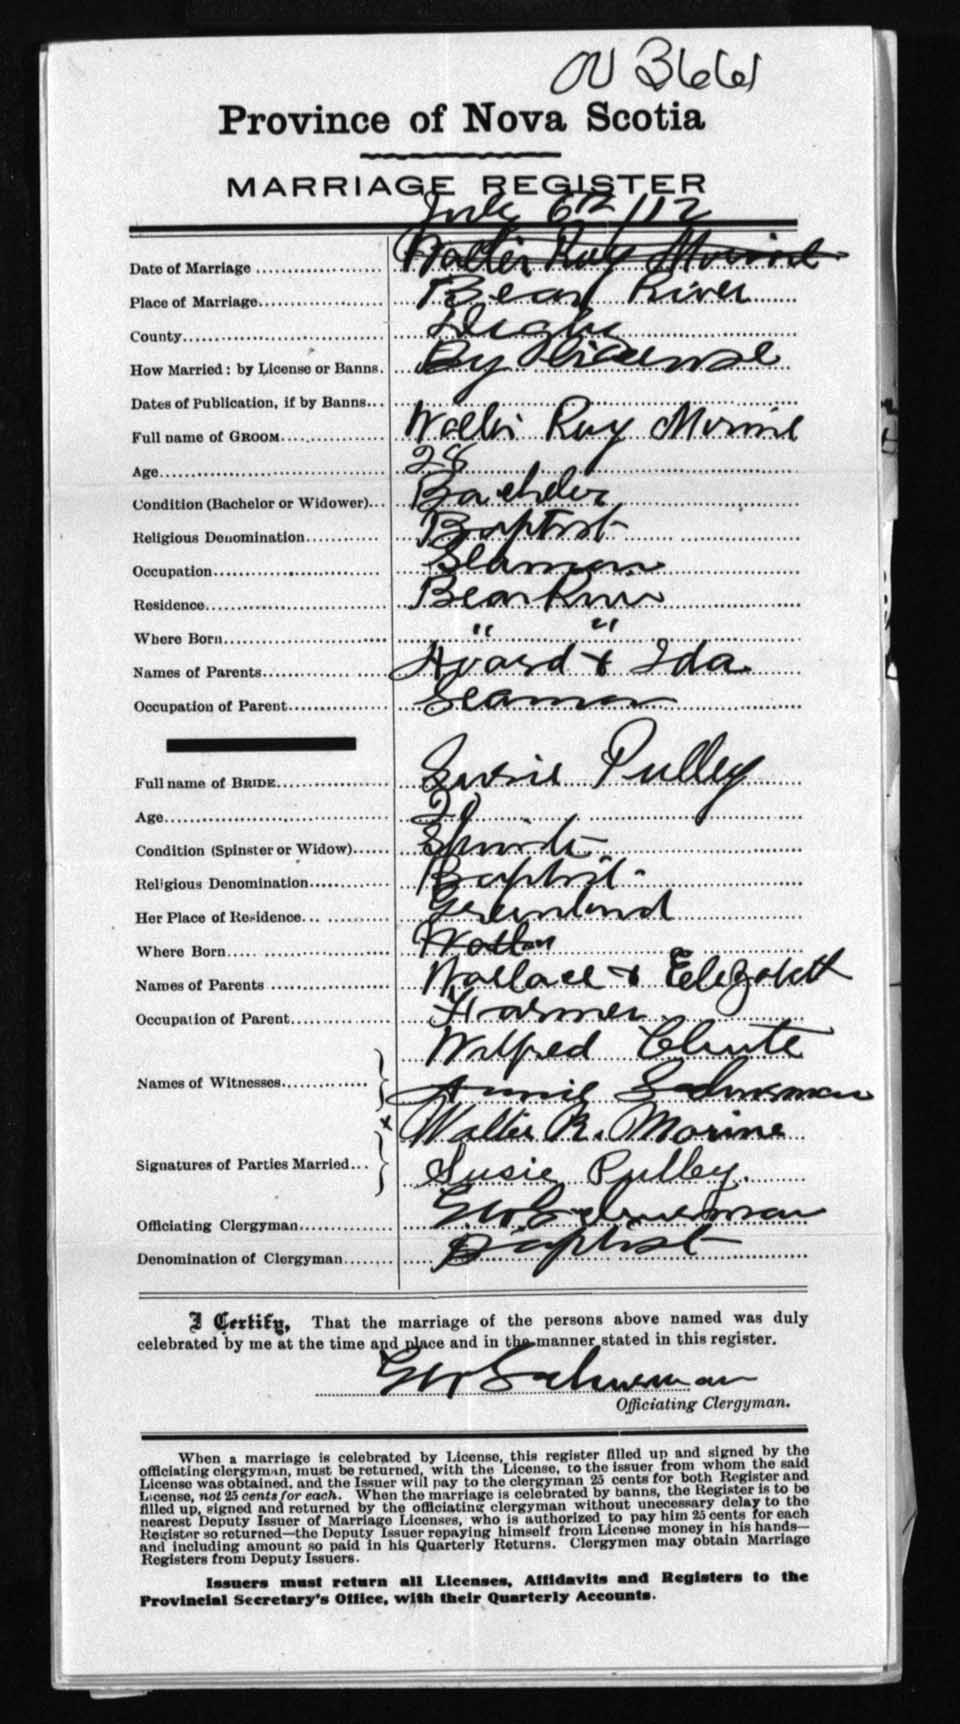 3661
Province of Nova Scotia
MARRIAGE REGISTER
July 6th/12
Date of Marriage Walter Ray Morine
Place of Marriage Bear River
County Digby
How Married: by License or Banns. By License
Dates of Publication, if by Banns
Full name of GROOM Walter Ray Morine
Age 28
Condition (Bachelor or Widower) Bachelor
Religious Denomination Baptist
Occupation Seaman
Residence Bear River
Where Born " "
Names of Parents Avard & Ida
Occupation of Parent Seaman
Full name of BRIDE Susie Pulley
Age
Condition (Spinster or Widow)
Religious Denomination Baptist
Her Place of Residence Greenland
Where Born
Names of Parents Wallace & Elizabeth
Occupation of Parent Farmer
Wilfred Chute
Names of Witnesses Annie Schurman
x Walter R. Morine
Signatures of Parties Married Susie Pulley.
Officiating Clergyman Schurman
Denomination of Clergyman Baptist
I Certify, That the marriage of the persons above named was duly
celebrated by me at the time and place and in the manner stated in this register.
Schurman
Officiating Clergyman.
When a marriage is celebrated by License, this register filled up and signed by the
officiating clergyman, must be returned, with the License, to the issuer from whom the said
License was obtained, and the Issuer will pay to the clergyman 25 cents for both Register and
License, not 25 cents for each. When the marriage is celebrated by banns, the Register is to be
filled up, signed and returned by the officiating clergyman without unecessary delay to the
nearest Deputy Issuer of Marriage Licenses, who is authorized to pay him 25 cents for each
Register so returned—the Deputy Issuer repaying himself from License money in his hands—
and including amount so paid in his Quarterly Returns. Clergymen may obtain Marriage
Registers from Deputy Issuers.
Issuers must return all Licenses, Affidavits and Registers to the
Provincial Secretary's Office, with their Quarterly Accounts.